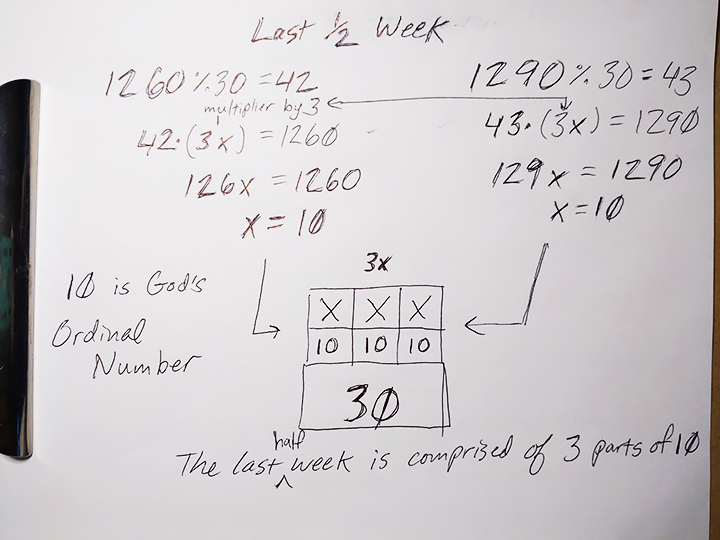 Last 1/2 Week
1260 % 30 = 42
multiplier by 3
42·(3x) = 1260
126x = 1260
x = 10
1290 % 30 = 43
43·(3x) = 1290
129x = 1290
x = 10
10 is God's
Ordinal
Number
3x
X X X
10 10 10
30
half
The last week is comprised of 3 parts of 10